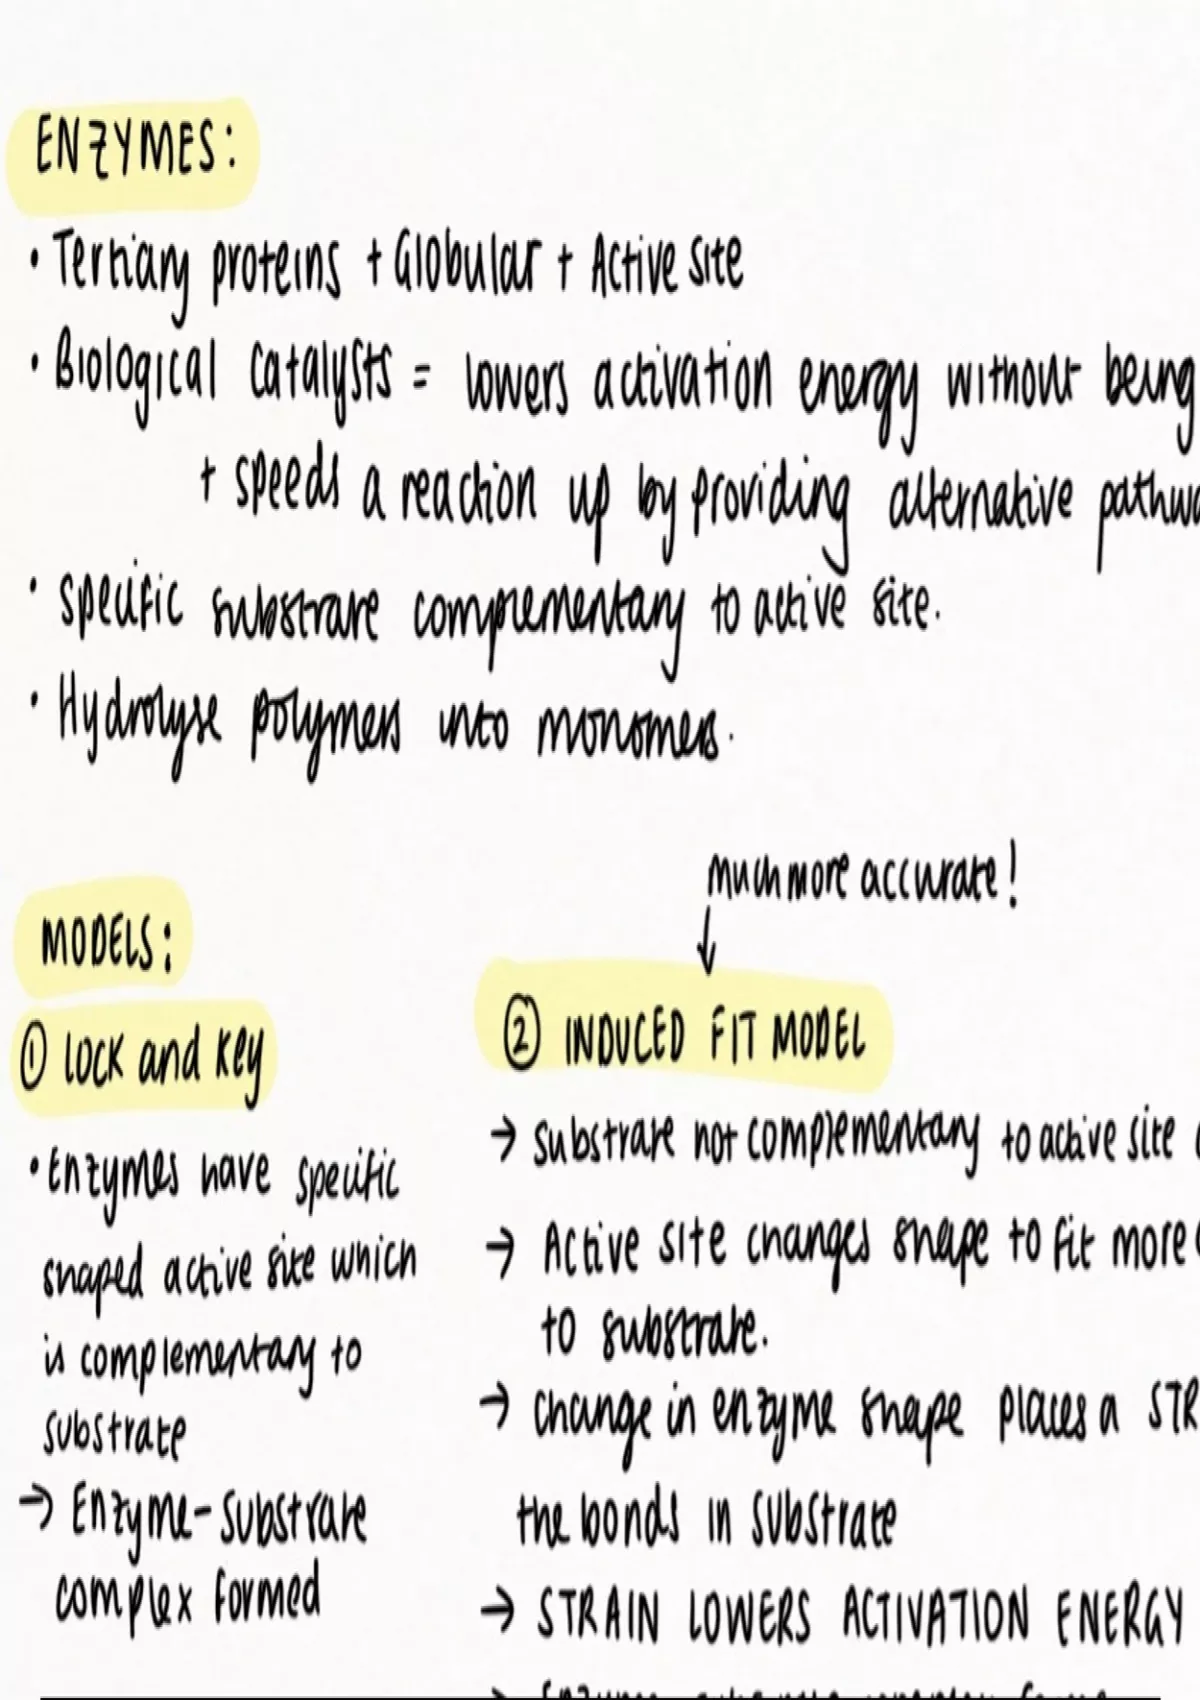 ENZYMES:
• Tertiary proteins + Globular + Active site
• Biological catalysts = lowers activation energy without being
+ speeds a reaction up by providing alternative pathwa
• specific substrate complementary to active site.
• Hydrolyse polymers into monomers.
much more accurate!
↓
MODELS:
① Lock and Key
• Enzymes have specific
shaped active site which
is complementary to
substrate
→ Enzyme-substrate
complex formed
② INDUCED FIT MODEL
→ substrate not complementary to active site
→ Active site changes shape to fit more
to substrate.
→ change in enzyme shape places a STR
the bonds in substrate
→ STRAIN LOWERS ACTIVATION ENERGY